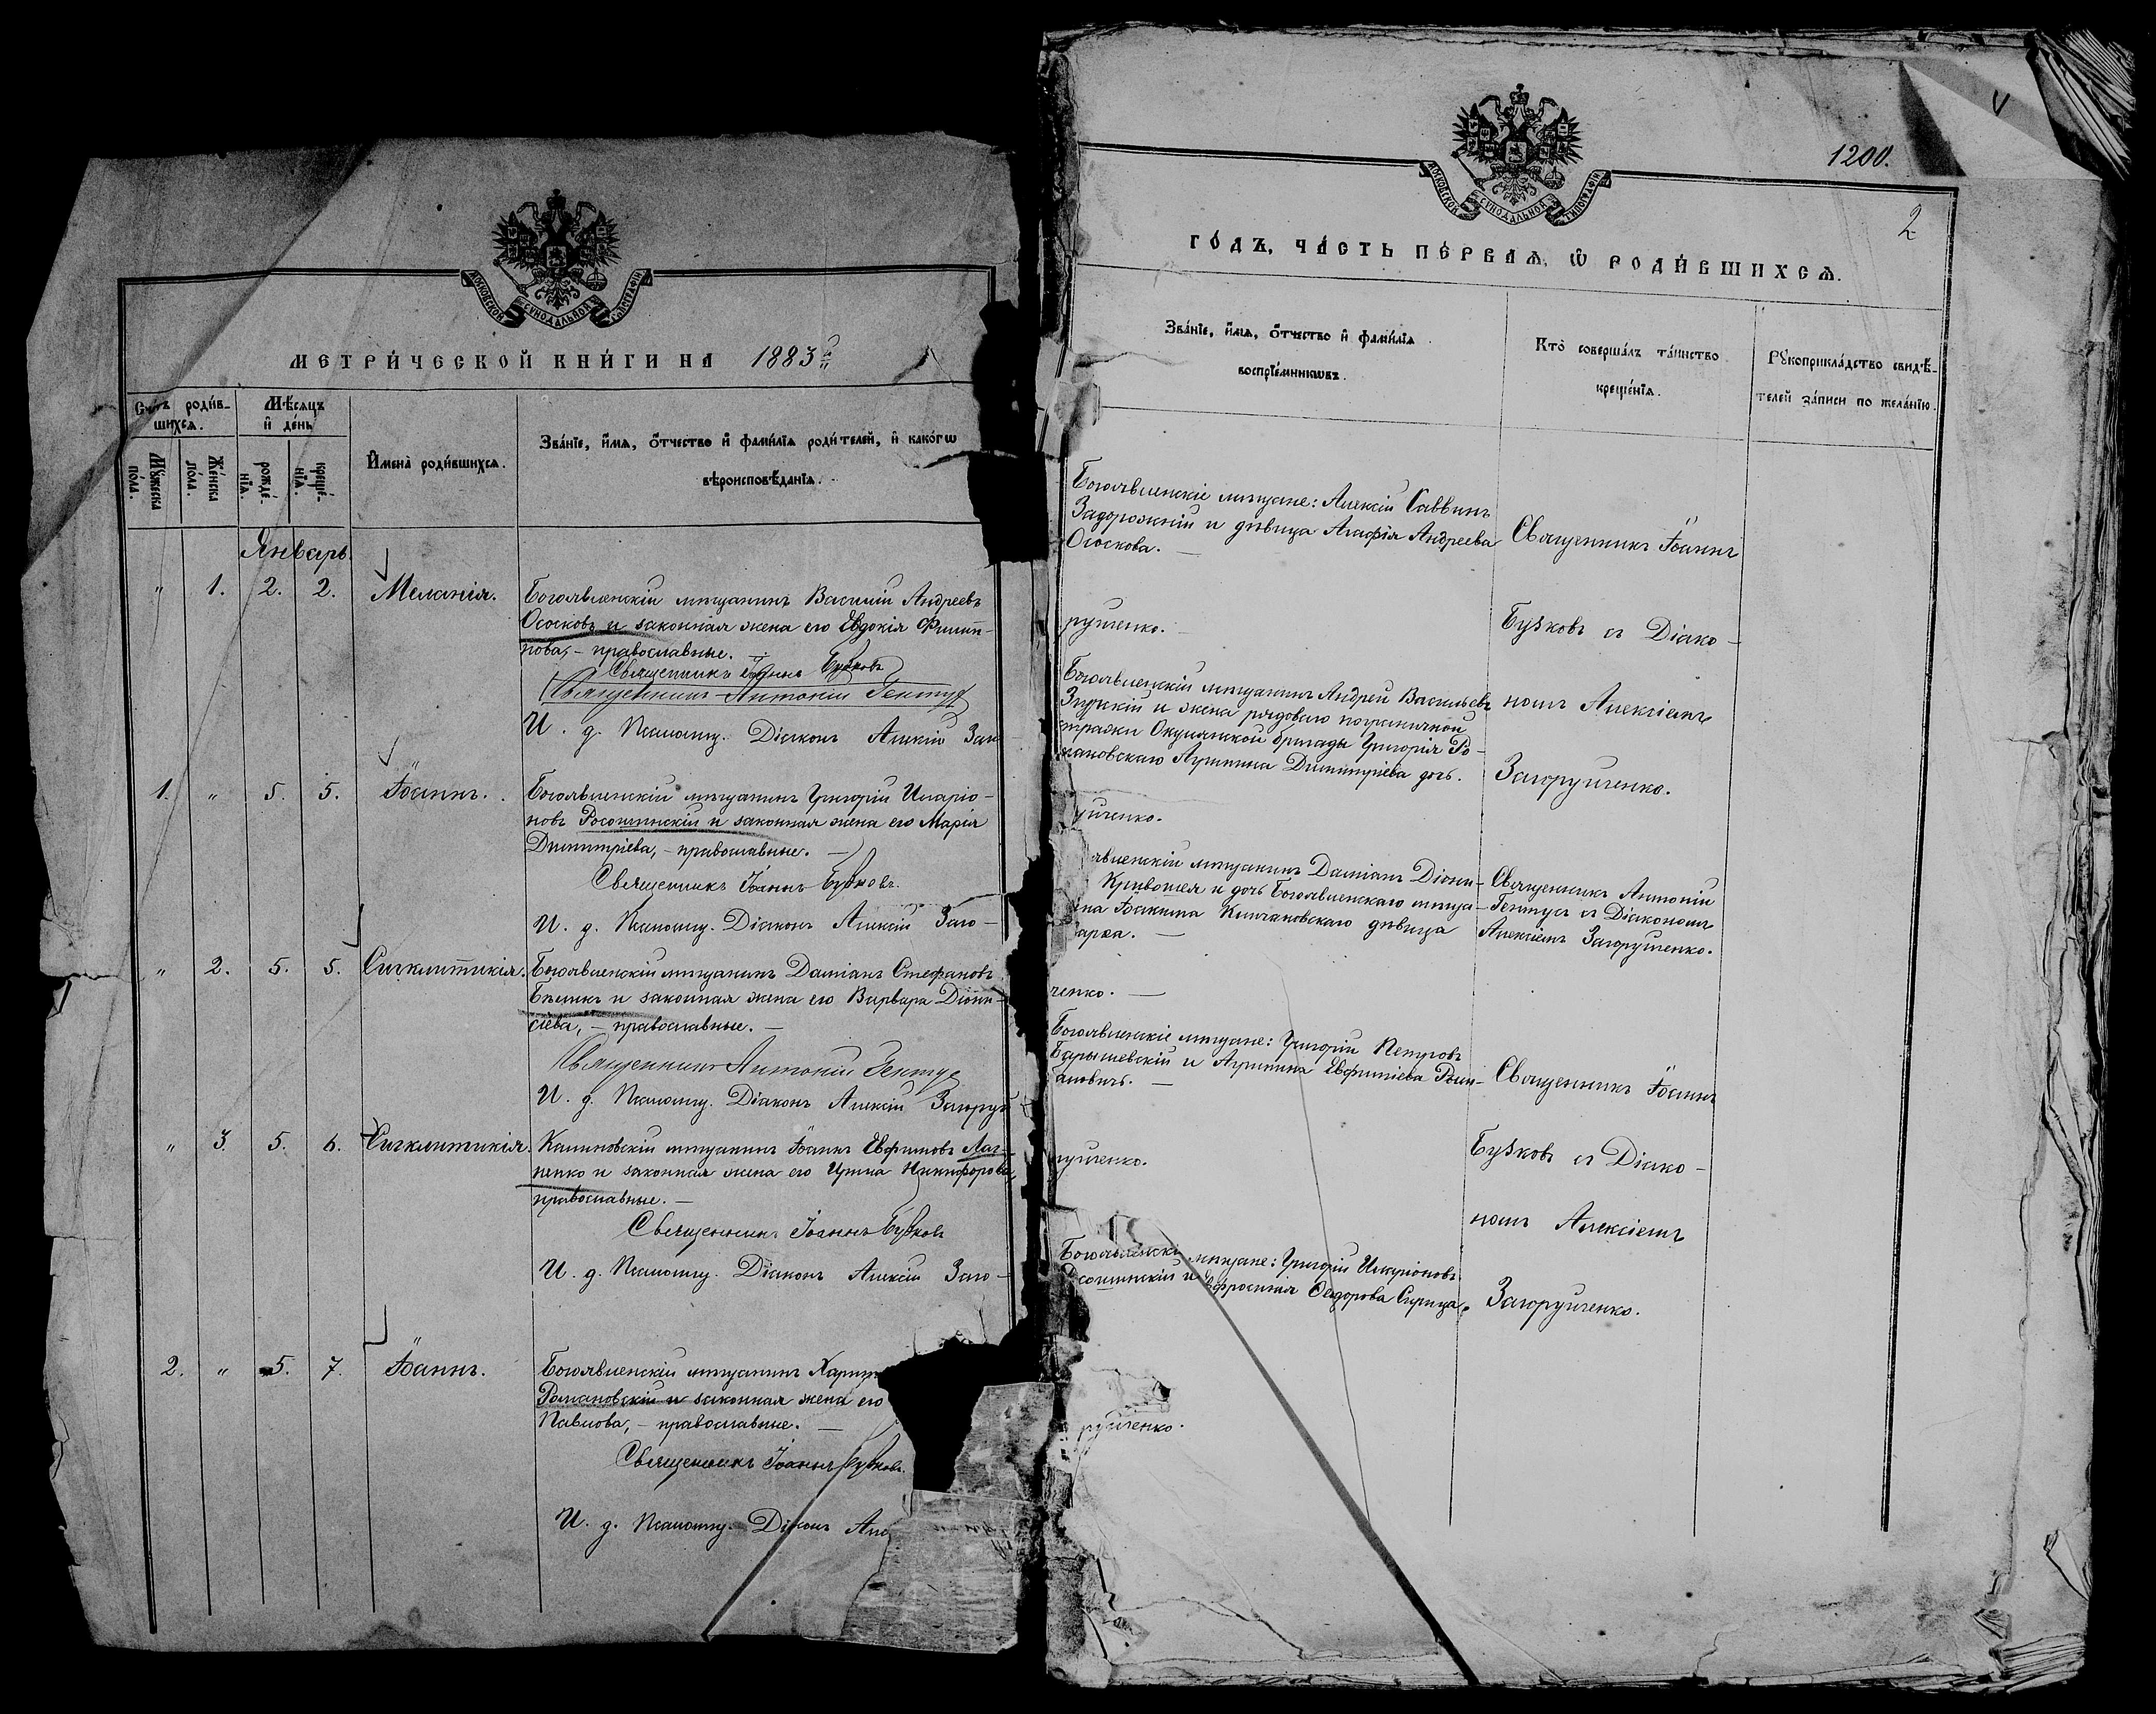 МОСКОВСКОЙ СѴНОДАЛЬНОЙ ТѴПОГРАФІИ
МЕТРИ́ЧЕСКОЙ КНИ́ГИ НА 1883й
Сче́тъ роди́в-
шихсѧ.
Мѣ́сѧцъ
и҆ де́нь
Мꙋ́жеска по́ла.
Же́нска по́ла.
рожде́-
нїѧ.
креще́-
нїѧ.
И҆мена̀ роди́вшихсѧ.
Зва́нїе, и҆́мѧ, о҆́тчество и҆ фами́лїѧ роди́телей, и҆ како́гѡ
вѣроисповѣ́данїѧ.
Январь.
" 1. 2. 2. Меланія.
Богоявленскій мѣщанинъ Василій Андреевъ
Ососковъ и законная жена его Евдокія Филип-
пова, – православные. –
Священникъ Іоаннъ Бузковъ
Священникъ Антоній Гентуе
И. д. Псаломщ. Діаконъ Алексій Заго
1. " 5. 5. Іоаннъ.
Богоявленскій мѣщанинъ Григорій Иларіо-
новъ Росошинскій и законная жена его Марія
Димитріева, – православные. –
Священникъ Іоаннъ Бузковъ.
И. д. Псаломщ. Діаконъ Алексій Заго-
" 2. 5. 5. Сигклитикія.
Богоявленскій мѣщанинъ Даміанъ Стефановъ
Бѣликъ и законная жена его Варвара Діони-
сіева, – православные. –
Священникъ Антоній Гентуе
И. д. Псаломщ. Діаконъ Алексій Загоруй
" 3. 5. 6. Сигклитикія.
Калиновскій мѣщанинъ Іоаннъ Евфимовъ
ненко и законная жена его Ирина Никифорова,
православные. –
Священникъ Іоаннъ Бузковъ
И. д. Псаломщ. Діаконъ Алексій Заго-
2. " 5. 7. Іоаннъ.
Богоявленскій мѣщанинъ
Романовскій и законная жена его
Павлова, – православные. –
Священникъ Іоаннъ Бузковъ.
И. д. Псаломщ. Діаконъ Але
1200.
2
МОСКОВСКОЙ СѴНОДАЛЬНОЙ ТѴПОГРАФІИ
ГО́ДЪ, ЧА́СТЬ ПЕ́РВАѦ, Ѡ҆ РОДИ́ВШИХСѦ.
Зва́нїе, и҆́мѧ, о҆́тчество и҆ фами́лїѧ
воспрїе́мникѡвъ.
Кто̀ соверша́лъ та́инство
креще́нїѧ.
Рꙋкоприкла́дство свидѣ́-
телей за́писи по жела́нїю.
Богоявленскіе мѣщане: Алексій Саввинъ
Задорожній и дѣвица Агафія Андреева
Ососкова. –
Священникъ Іоаннъ
руйченко.
Бузковъ съ Діако-
Богоявленскій мѣщанинъ Андрей Васильевъ
и жена рядоваго пограничной
стражи бригады Григорія Ро-
мановскаго Агрипина Димитріева дочь.
номъ Алексіемъ
Загоруйченко.
уйченко.
явленскій мѣщанинъ Даміанъ Діони-
Кривошея и дочь Богоявленскаго мѣща-
на Іоакима дѣвица
Священникъ Антоній
Гентуе съ Діакономъ
Алексіемъ Загоруйченко.
ченко. –
Богоявленскіе мѣщане: Григорій Петровъ
Барышевскій и Агрипина Евфиміева Рома-
ановичъ. –
Священникъ Іоаннъ
руйченко.
Бузковъ съ Діако-
номъ Алексіемъ
Богоявленскі мѣщане: Григорій Иларіоновъ
Росошинскій и Евфросинія Ѳеодорова
Загоруйченко.
руйченко.